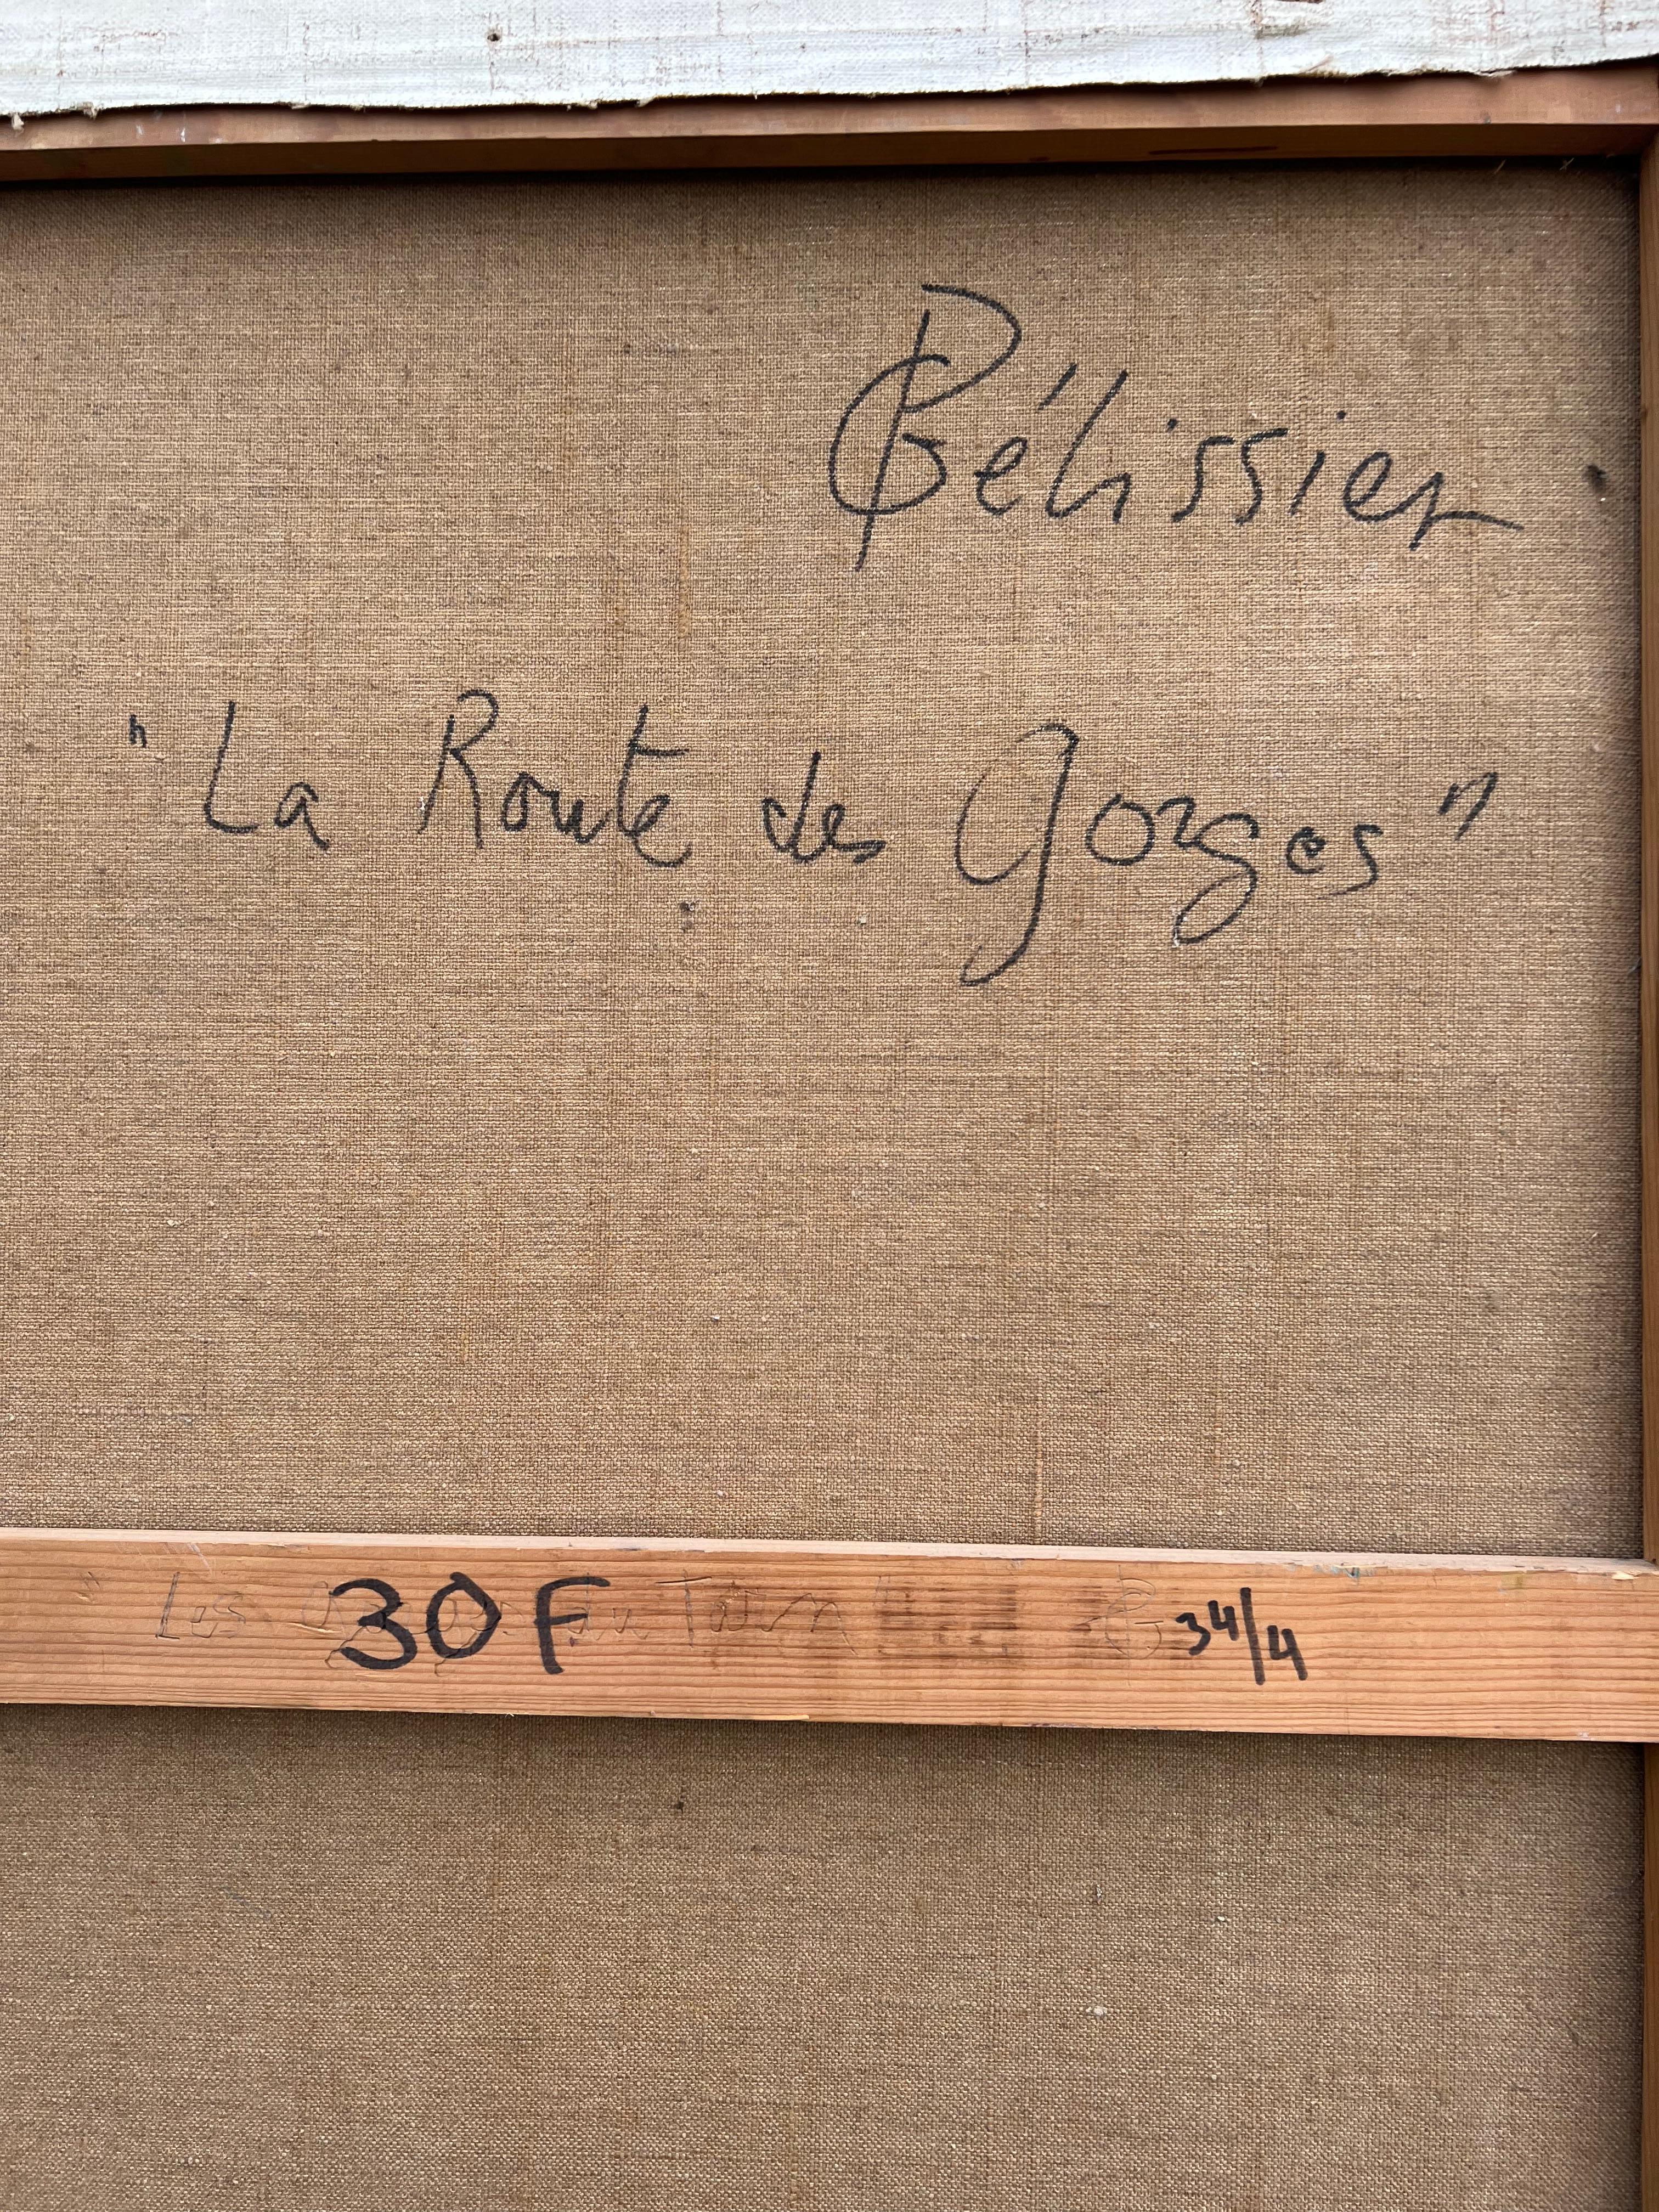 G Pélissier
"La Route des Gorges"
"Les Gorges du Tarn" 30F G 34/4